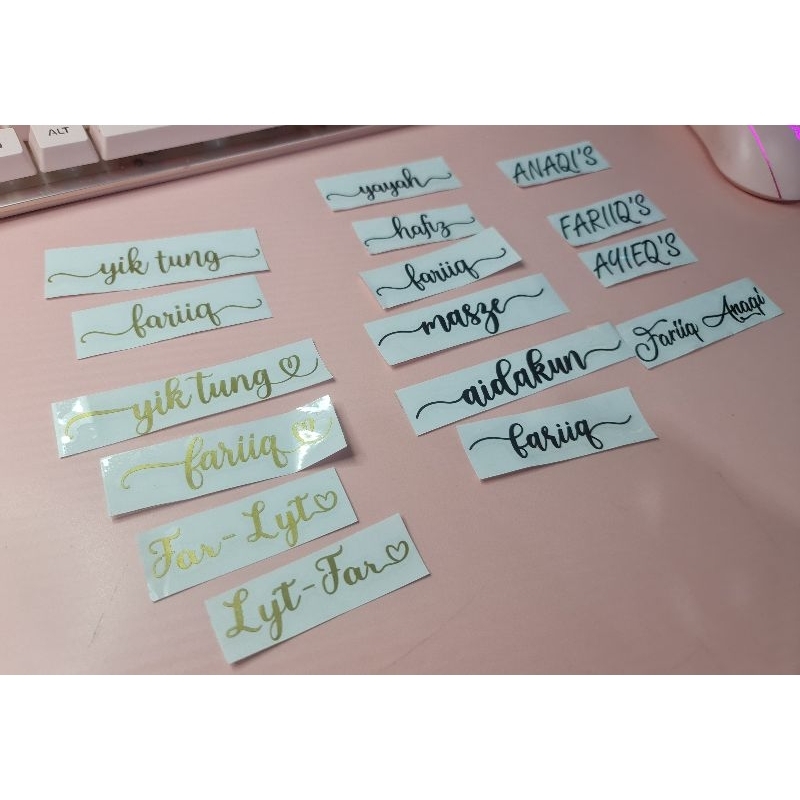 ALT
yik tung
fariiq
yik tung
fariiq
Far-Lyt
Lyt-Far
yayah
hafiz
fariiq
masze
aidakun
fariiq
ANAQI'S
FARIIQ'S
AYIEQ'S
Fariiq Anaqi